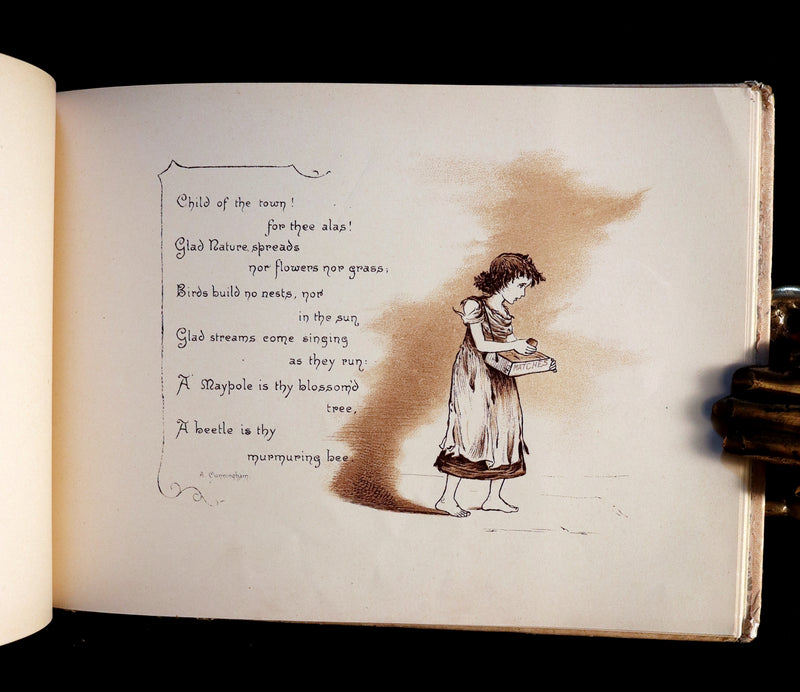 Child of the town!
for thee alas!
Glad Nature spreads
nor flowers nor grass;
Birds build no nests, nor
in the sun
Glad streams come singing
as they run:
A Maypole is thy blossom'd
tree,
A beetle is thy
murmuring bee.
A. Cunningham.
MATCHES